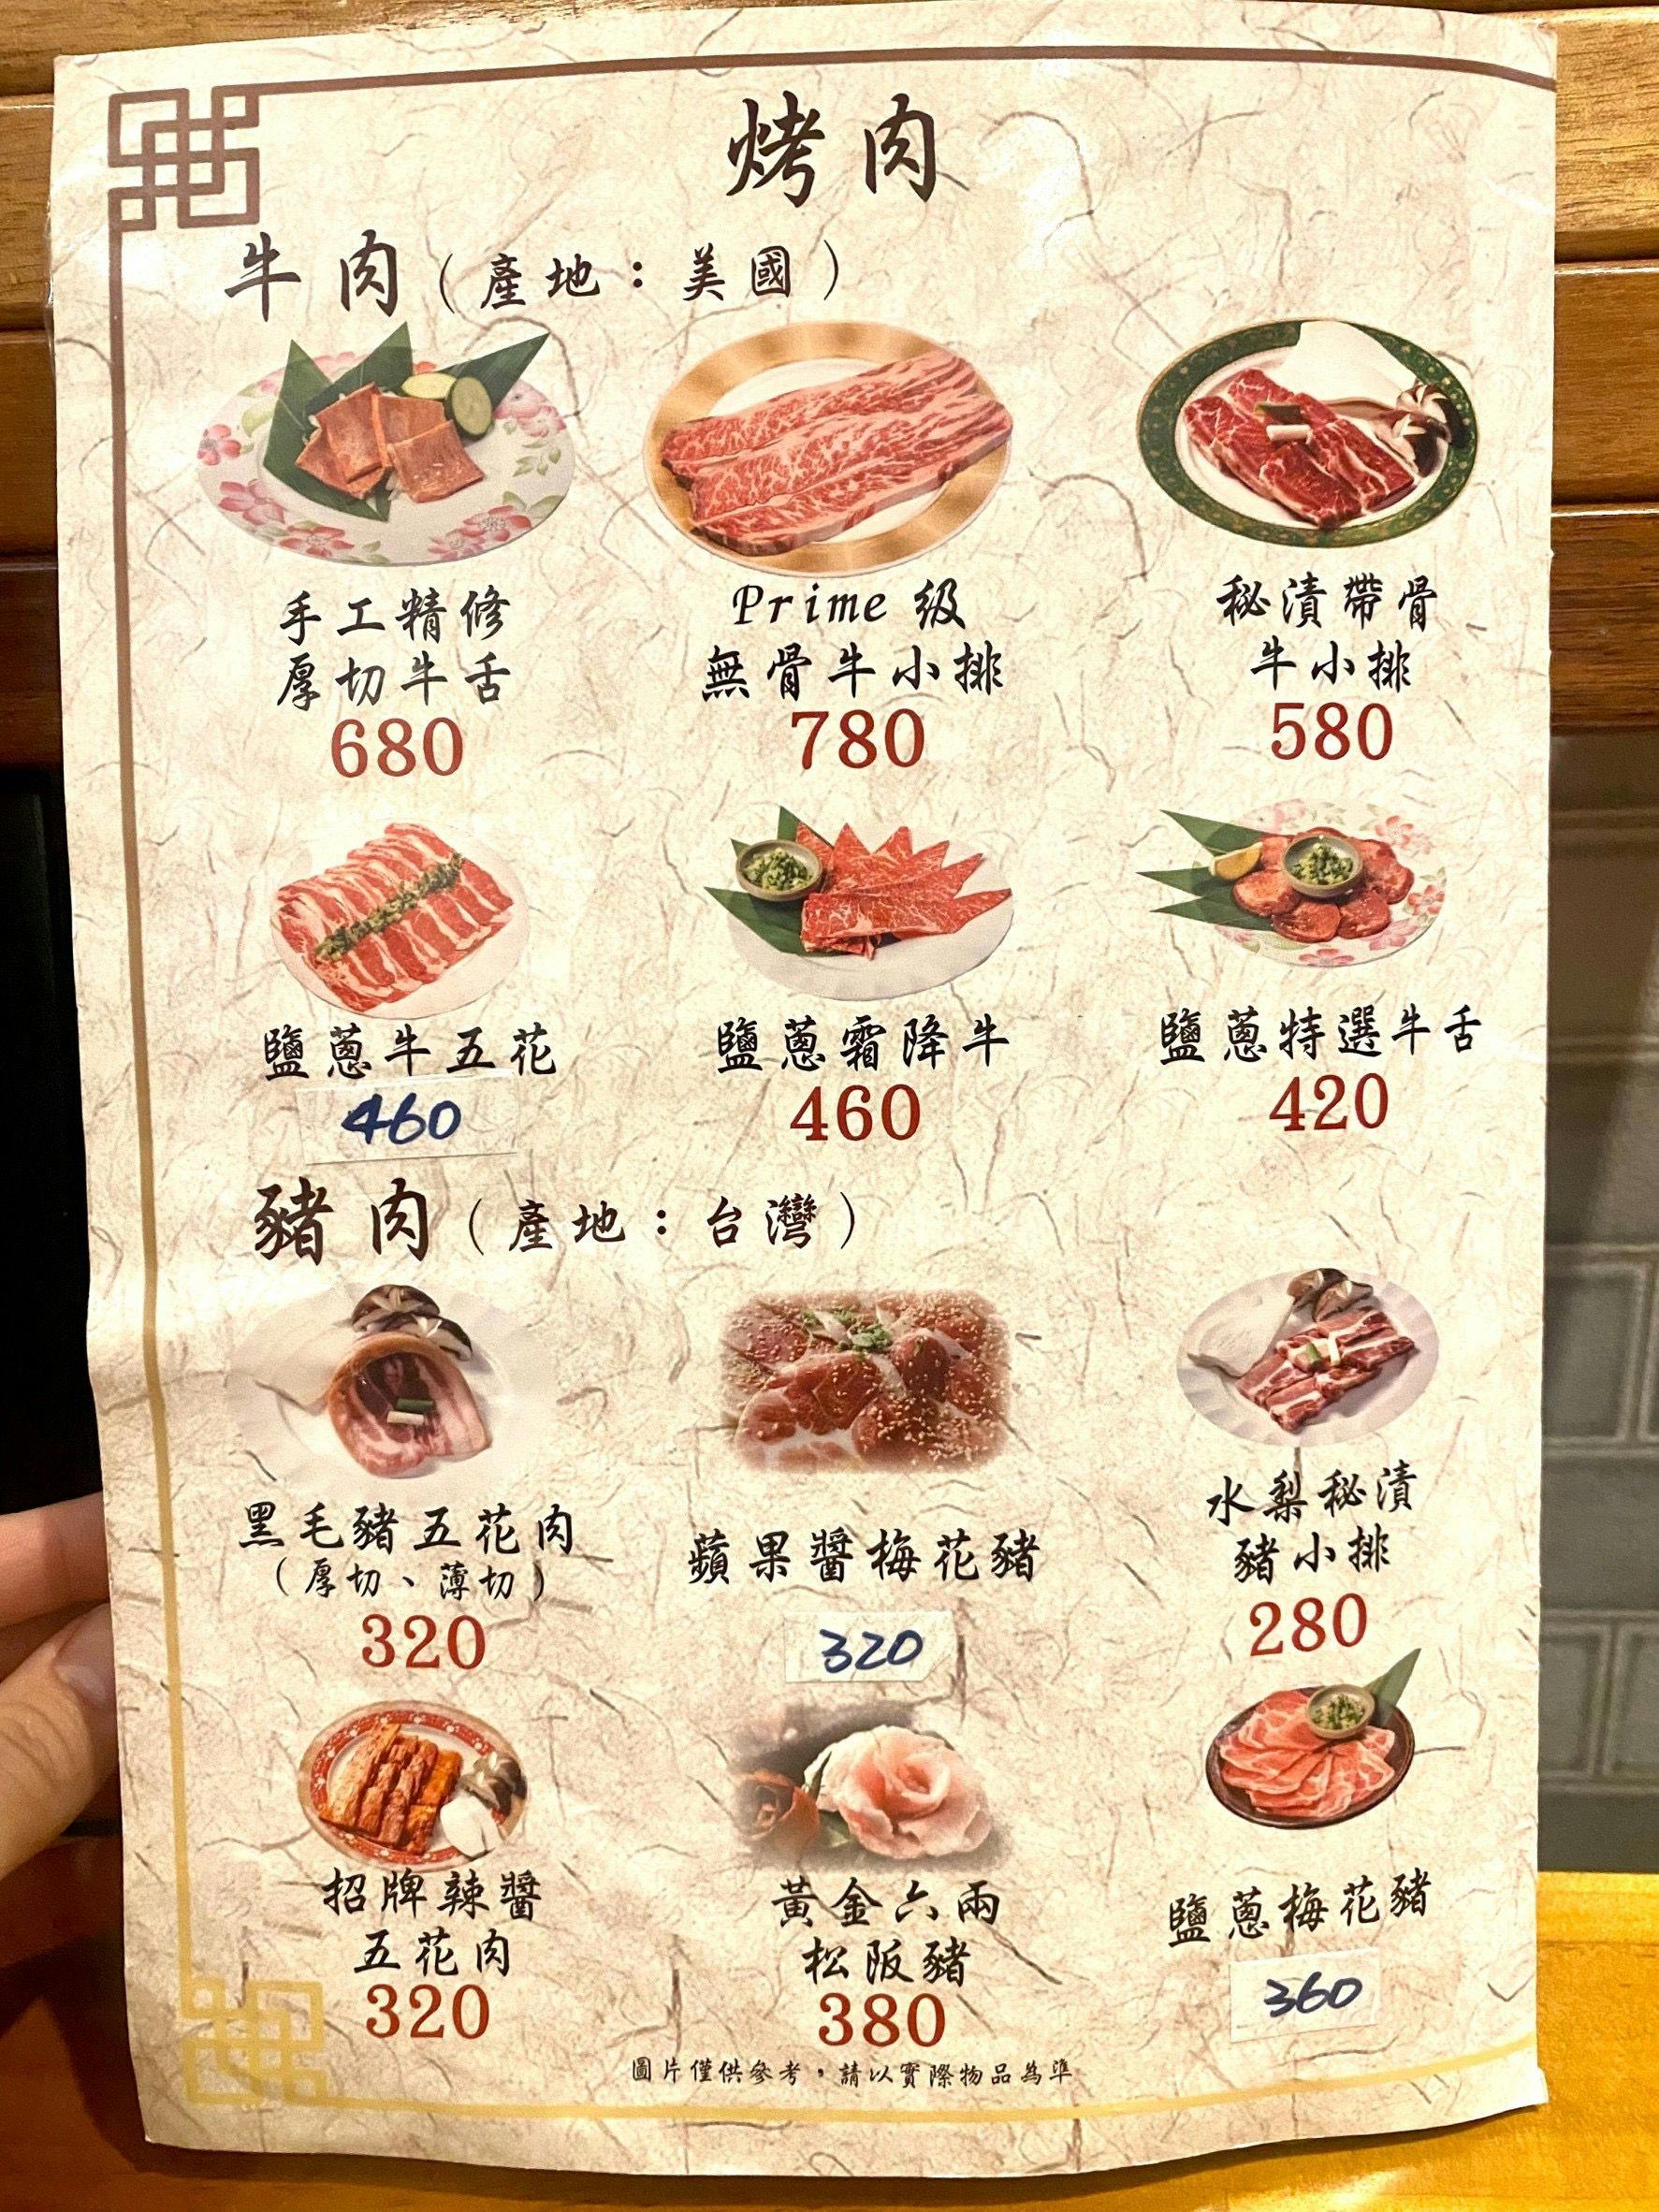 烤肉
牛肉（產地：美國）
手工精修
厚切牛舌
680
Prime 級
無骨牛小排
780
秘漬帶骨
牛小排
580
鹽蔥牛五花
460
鹽蔥霜降牛
460
鹽蔥特選牛舌
420
豬肉（產地：台灣）
黑毛豬五花肉
（厚切、薄切）
320
蘋果醬梅花豬
320
水梨秘漬
豬小排
280
招牌辣醬
五花肉
320
黃金六兩
松阪豬
380
鹽蔥梅花豬
360
圖片僅供參考，請以實際物品為準